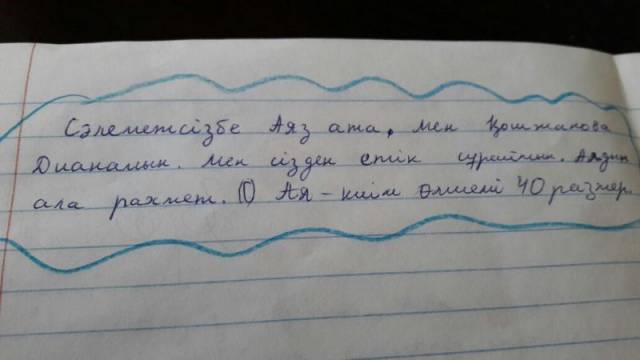 Сәлеметсізбе Аяз ата, мен Қоштанова
Дианамын. Мен сізден етік сұраймын. Алдын
ала рахмет. () Ая-киім өлшемі 40 размер.